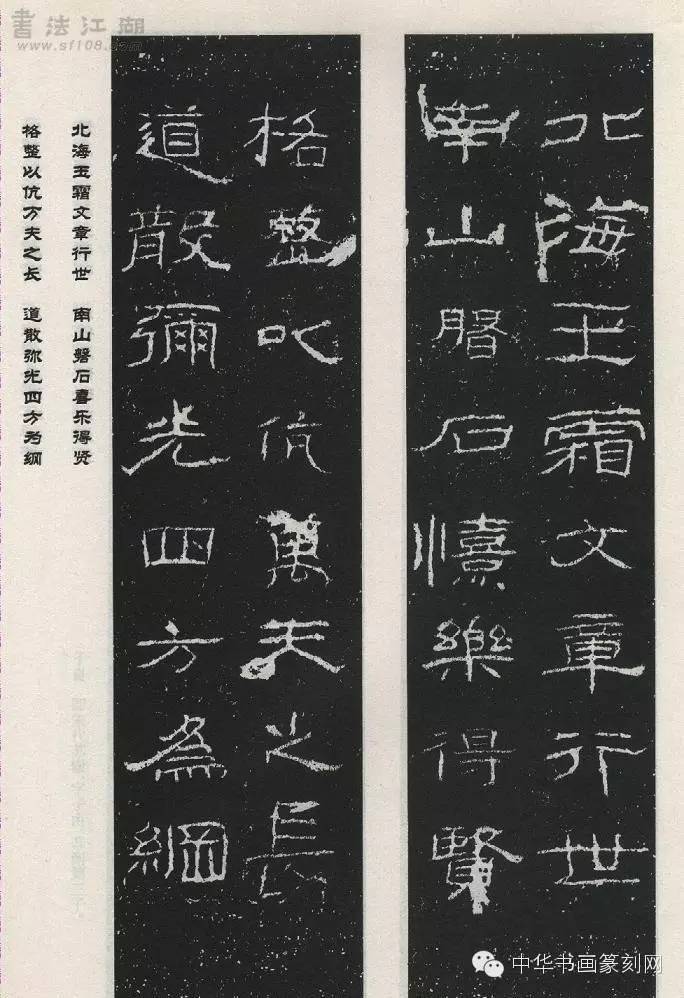 北海玉霜文章行世
南山䃈石憙樂得賢
格整以伉萬夫之長
道散彌光四方為綱
北海玉霜文章行世 南山磐石喜乐得贤
格整以伉万夫之长 道散弥光四方为纲
書法江湖
www.sf108.com
中华书画篆刻网